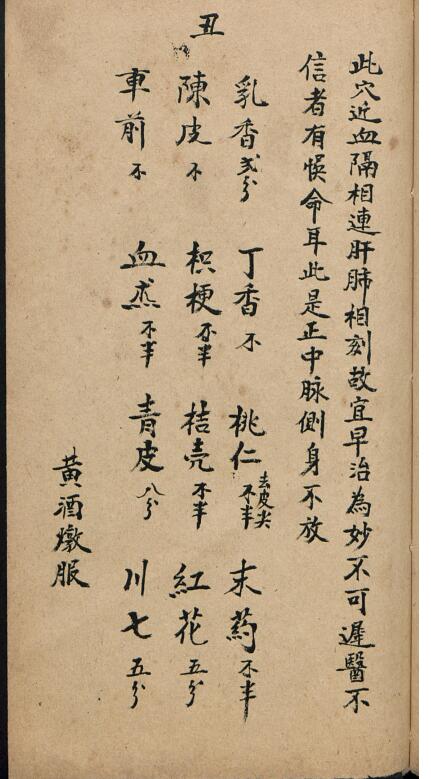 丑
此穴近血隔相連肝肺相刻故宜早治為妙不可遲醫不
信者有悞命耳此是正中脉側身不放
乳香弍分 丁香不 桃仁去皮尖不半 末药不半
陳皮不 枳梗不半 桔壳不半 紅花五分
車前不 血蒸不半 青皮八分 川七五分
黃酒燉服